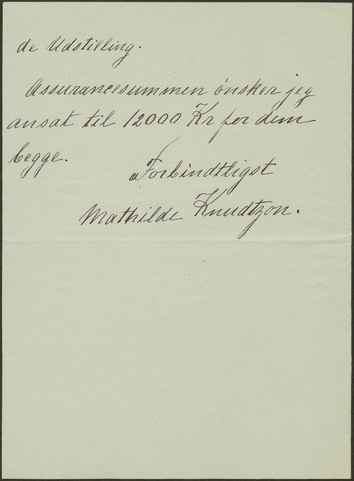 de Udstilling.
Assurancesummen ønsker jeg
ansat til 12000 Kr for dem
begge.
Forbindtligst
Mathilde Knudtzon.